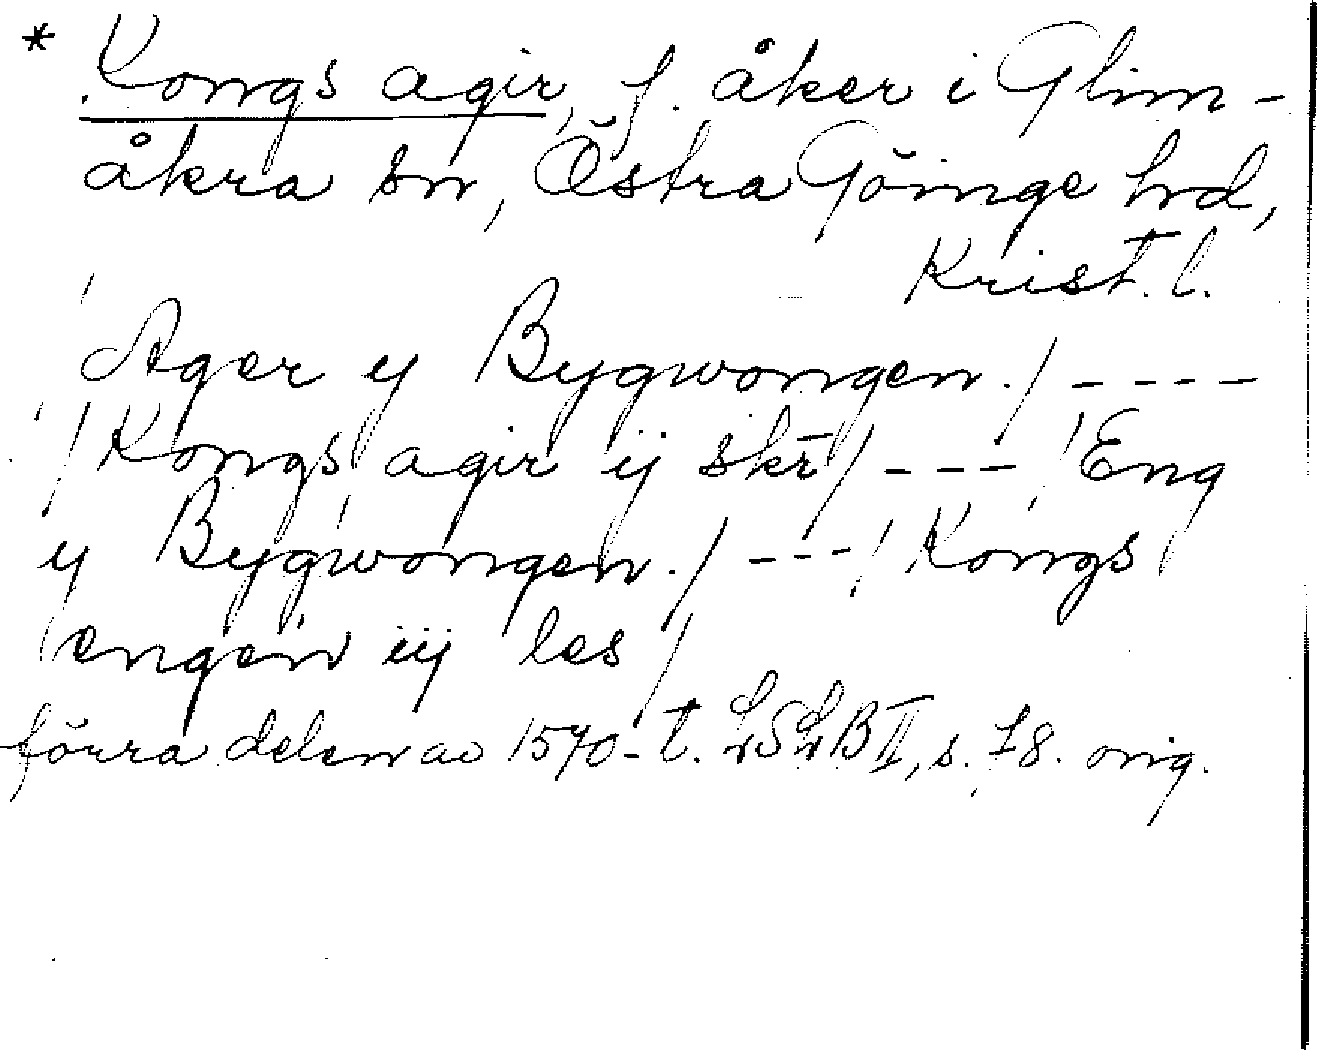 * Kongs agir, f. åker i Glim-
åkra sn, Östra Göinge hd,
Krist. l.
Ager y Bygwongen./----
/Kongs agir ij skr̄/---/Eng
y Bygwongen./---/Kongs
engen iij les/
förra delen av 1570-t. LSLB II, s. 78. orig.